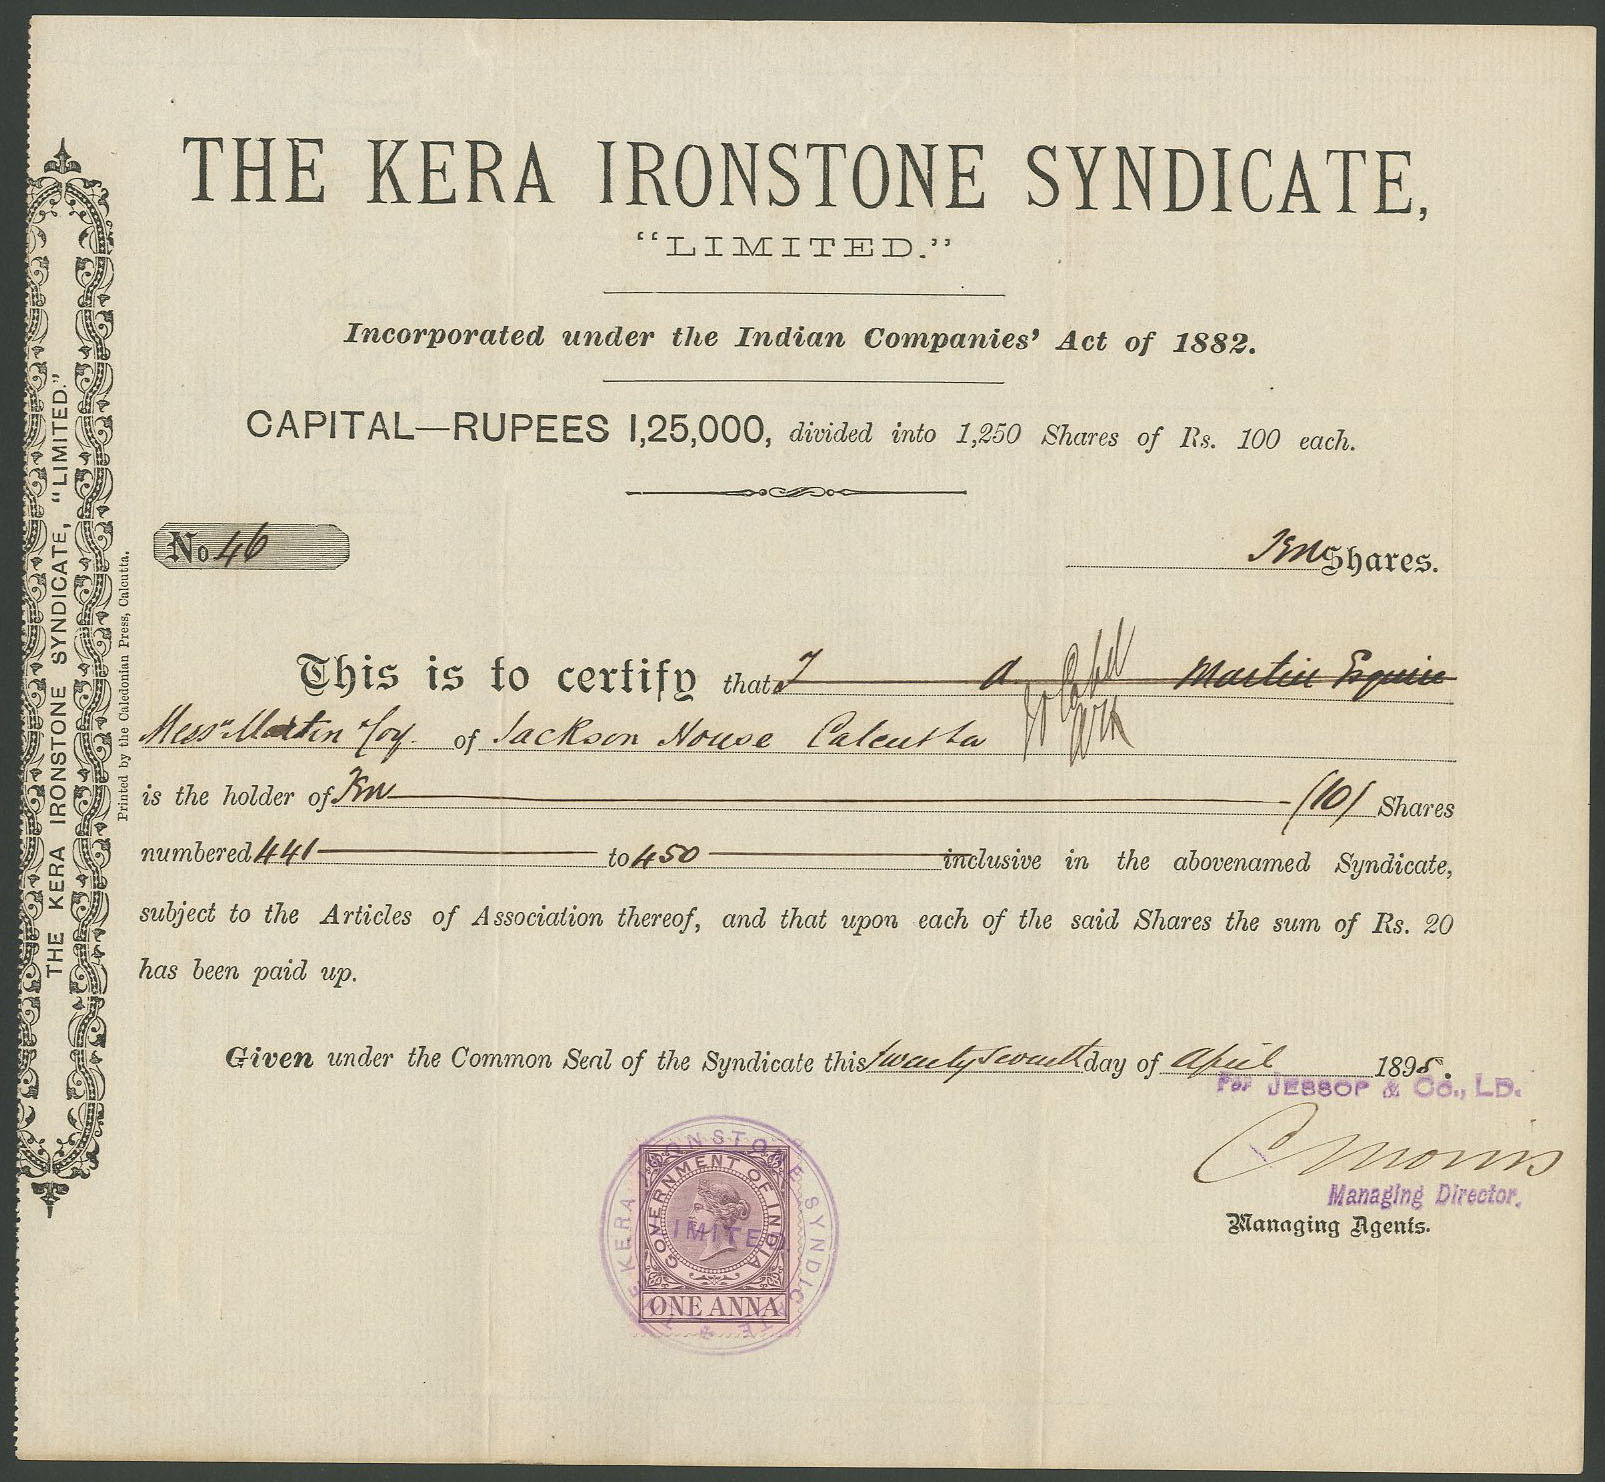 THE KERA IRONSTONE SYNDICATE,
"LIMITED."
Incorporated under the Indian Companies' Act of 1882.
CAPITAL—RUPEES 1,25,000, divided into 1,250 Shares of Rs. 100 each.
No 46
Ten Shares.
This is to certify that T A Martin Esquire
Messrs Martin & Coy. of Jackson House Calcutta
is the holder of Ten (10) Shares
numbered 441 to 450 inclusive in the abovenamed Syndicate,
subject to the Articles of Association thereof, and that upon each of the said Shares the sum of Rs. 20
has been paid up.
Given under the Common Seal of the Syndicate this twenty seventh day of April 1895.
For JESSOP & Co., LD.
C Morris
Managing Director.
Managing Agents.
THE KERA IRONSTONE SYNDICATE
LIMITED
GOVERNMENT OF INDIA
ONE ANNA
THE KERA IRONSTONE SYNDICATE, "LIMITED."
Printed by the Caledonian Press, Calcutta.